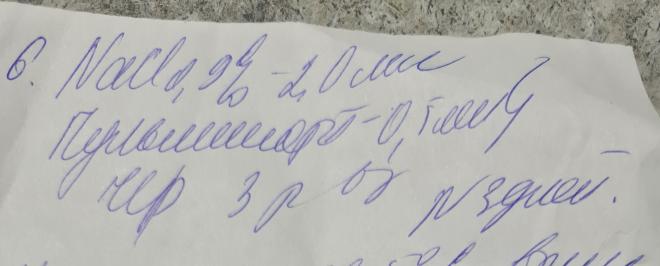 6. NaCl 0,9% - 2,0 мл
Пульмикорт - 0,5 мг
3 р N 3 дней.